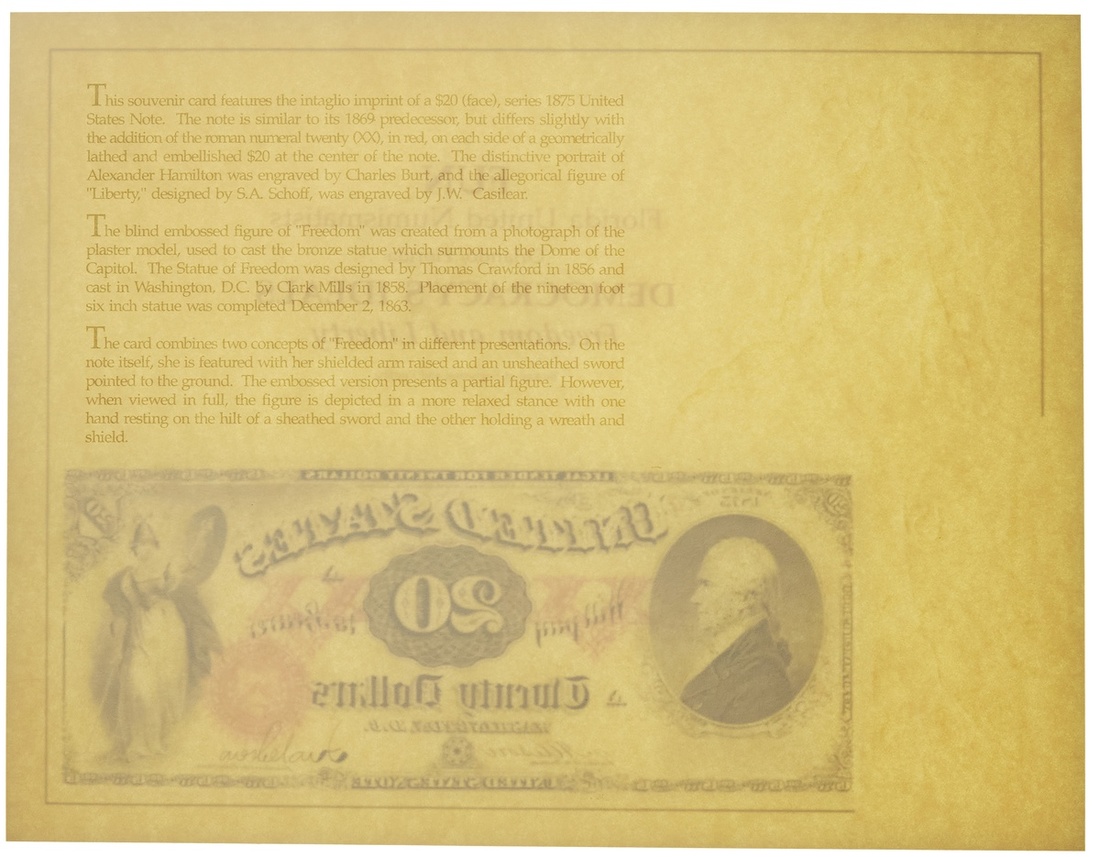 This souvenir card features the intaglio imprint of a $20 (face), series 1875 United
States Note. The note is similar to its 1869 predecessor, but differs slightly with
the addition of the roman numeral twenty (XX), in red, on each side of a geometrically
lathed and embellished $20 at the center of the note. The distinctive portrait of
Alexander Hamilton was engraved by Charles Burt, and the allegorical figure of
"Liberty," designed by S.A. Schoff, was engraved by J.W. Casilear.
The blind embossed figure of "Freedom" was created from a photograph of the
plaster model, used to cast the bronze statue which surmounts the Dome of the
Capitol. The Statue of Freedom was designed by Thomas Crawford in 1856 and
cast in Washington, D.C. by Clark Mills in 1858. Placement of the nineteen foot
six inch statue was completed December 2, 1863.
The card combines two concepts of "Freedom" in different presentations. On the
note itself, she is featured with her shielded arm raised and an unsheathed sword
pointed to the ground. The embossed version presents a partial figure. However,
when viewed in full, the figure is depicted in a more relaxed stance with one
hand resting on the hilt of a sheathed sword and the other holding a wreath and
shield.
FUN
Florida United Numismatists
DEMOCRACY'S
Freedom and Liberty
LEGAL TENDER FOR TWENTY DOLLARS
1875
UNITED STATES
20
XX
XX
Will pay
to Bearer
20
Twenty Dollars
WASHINGTON, D.C.
UNITED STATES NOTE